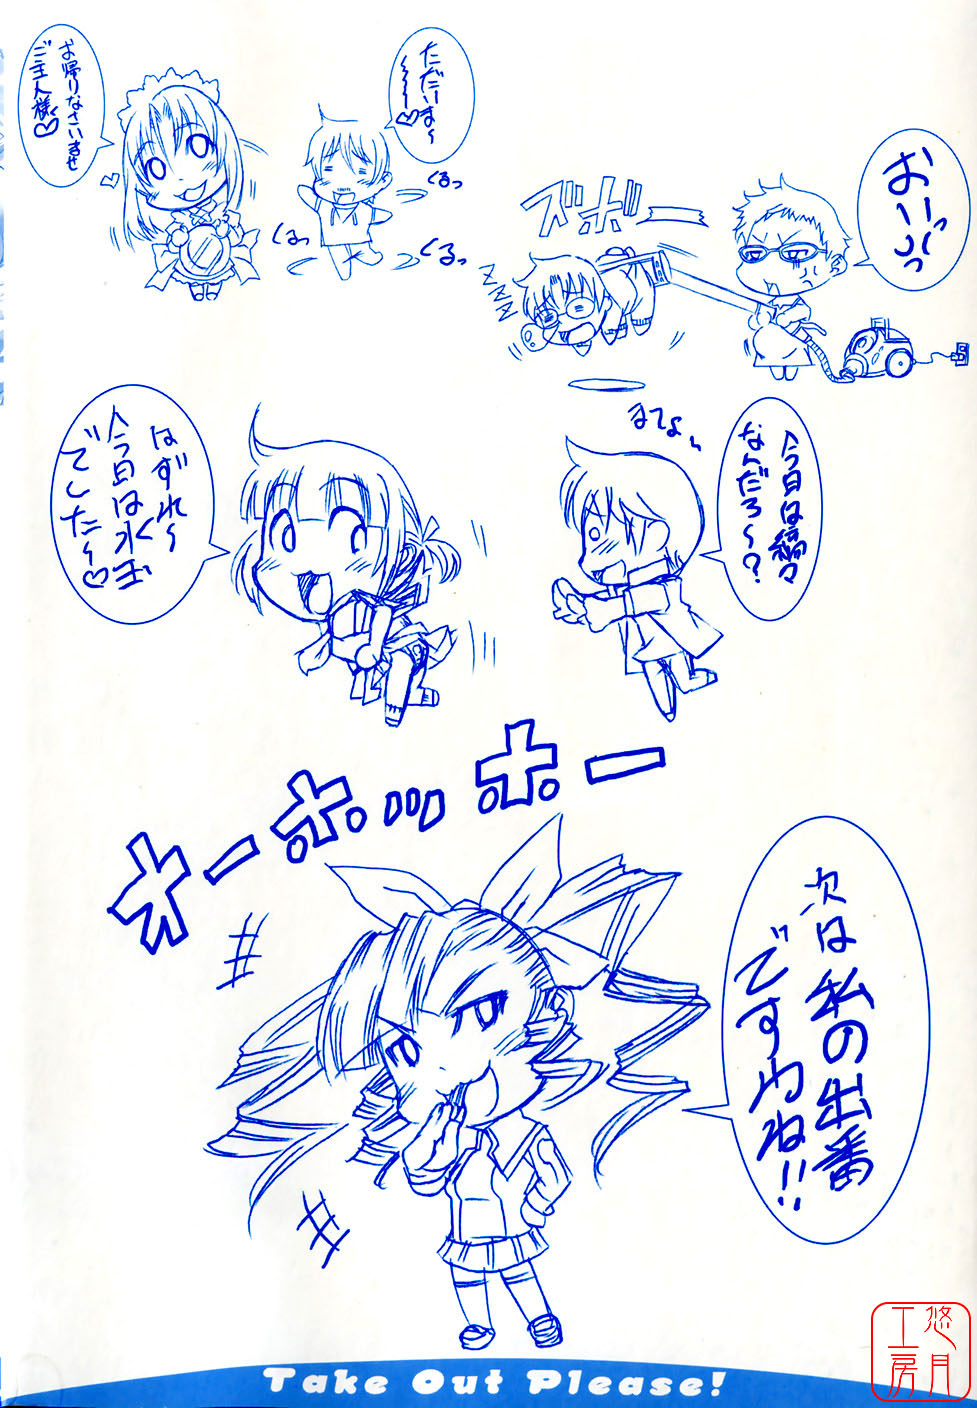 お帰りなさいませ
ご主人様♡
ただいま～
～～～♡
くるっ
くるっ
くるっ
おーいっっ
ズボーーー
ZZZZ
まてよぉ
今日は縞々
なんだろ～?
はずれ～
今日は水玉
でした～♡
オーホッホー
次は私の出番
ですわね!!
Take Out Please!
悠月
工房